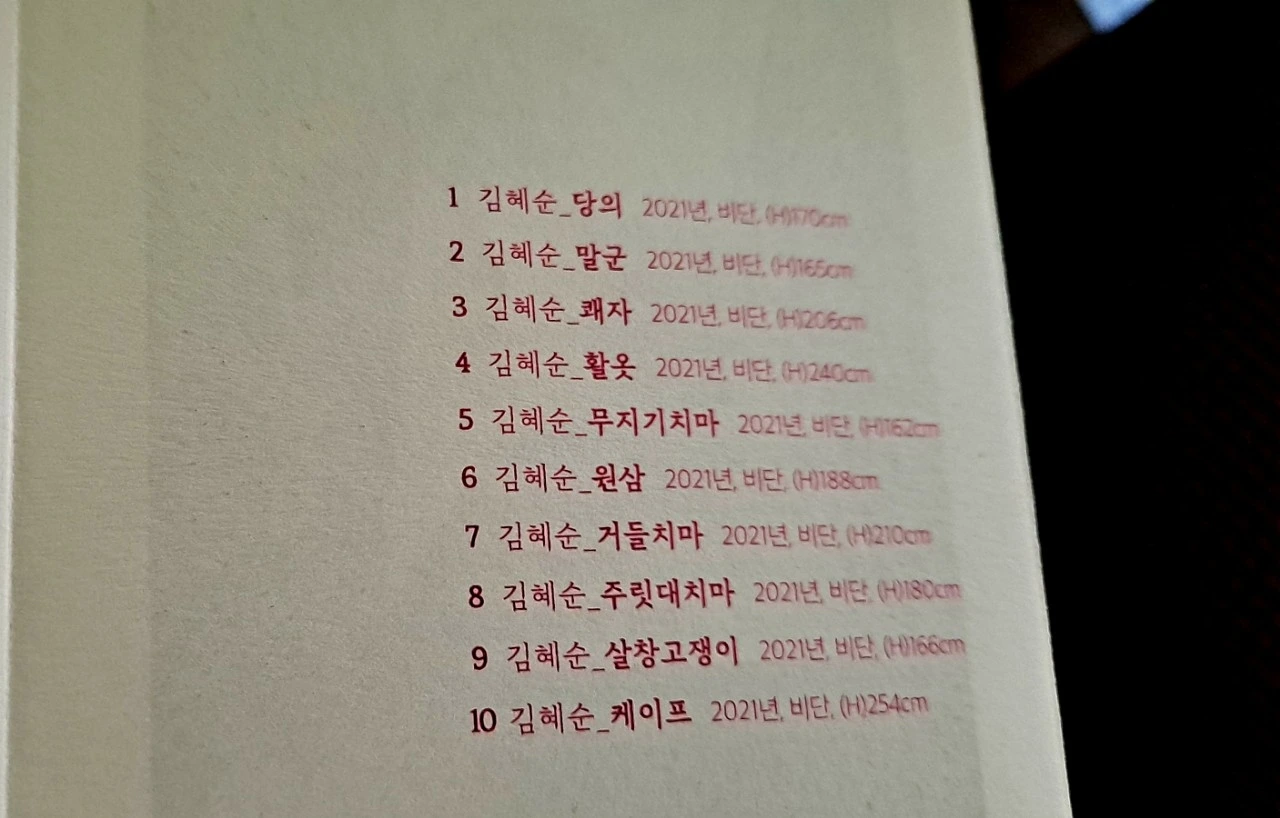 1 김혜순_당의 2021년, 비단, (H)170cm
2 김혜순_말군 2021년, 비단, (H)165cm
3 김혜순_쾌자 2021년, 비단, (H)206cm
4 김혜순_활옷 2021년, 비단, (H)240cm
5 김혜순_무지기치마 2021년, 비단, (H)162cm
6 김혜순_원삼 2021년, 비단, (H)188cm
7 김혜순_거들치마 2021년, 비단, (H)210cm
8 김혜순_주릿대치마 2021년, 비단, (H)180cm
9 김혜순_살창고쟁이 2021년, 비단, (H)166cm
10 김혜순_케이프 2021년, 비단, (H)254cm